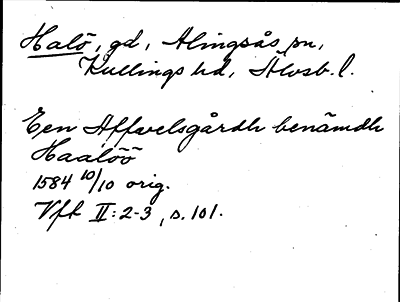 Halö, gd, Alingsås sn,
Kullings hd, Älvsb. l.
Een Affvelsgårdh benämdh
Haalöö
1584 10/10 orig.
Vft II:2-3, s. 101.